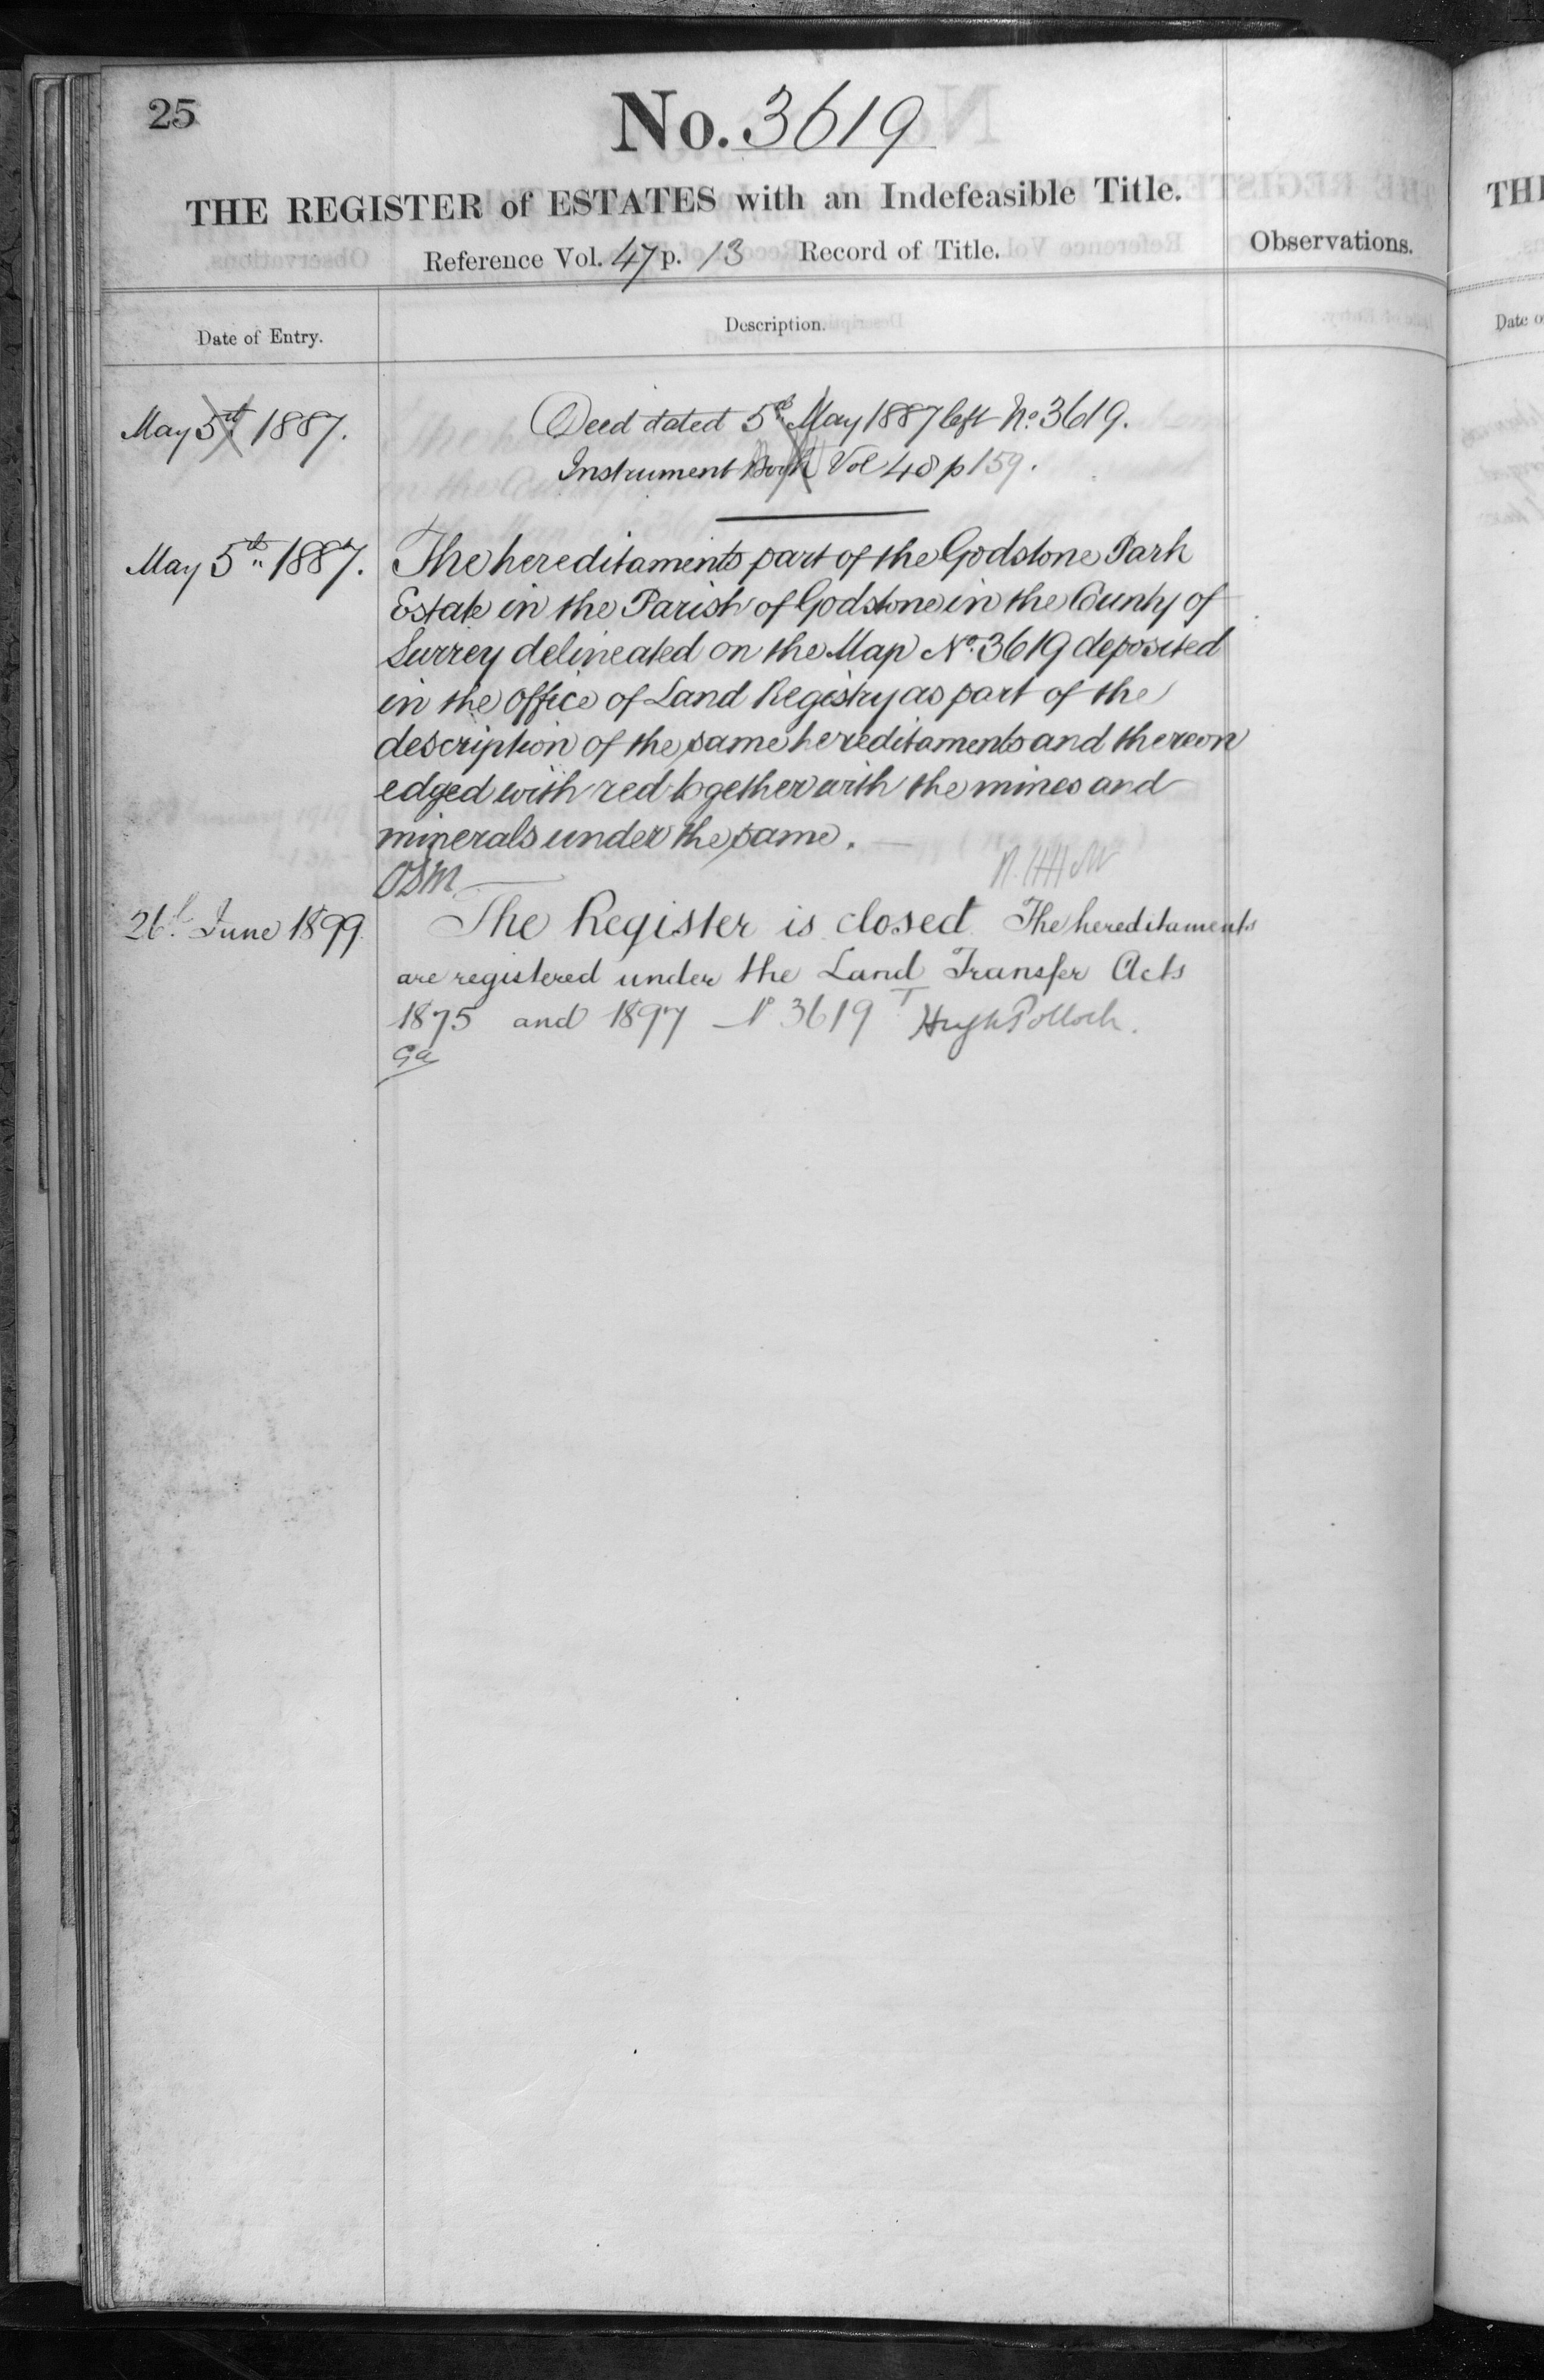 25
No. 3619
THE REGISTER of ESTATES with an Indefeasible Title.
Reference Vol. 47 p. 13 Record of Title.
Observations.
Date of Entry.
Description.
May 5th 1887.
Deed dated 5th May 1887 left No. 3619.
Instrument Book Vol 48 p 159.
May 5th 1887.
The hereditaments part of the Godstone Park
Estate in the Parish of Godstone in the County of
Surrey delineated on the Map No. 3619 deposited
in the office of Land Registry as part of the
description of the same hereditaments and thereon
edged with red together with the mines and
minerals under the same.
OSM
26th June 1899
The Register is closed. The hereditaments
are registered under the Land Transfer Acts
1875 and 1897 No 3619 Hugh Pollock.
Ga
TH
Date o